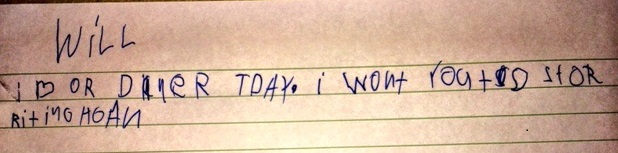 WiLL
i D OR DiNeR TODAY. i WONt YOU tO StOR
RitiNG AGAN